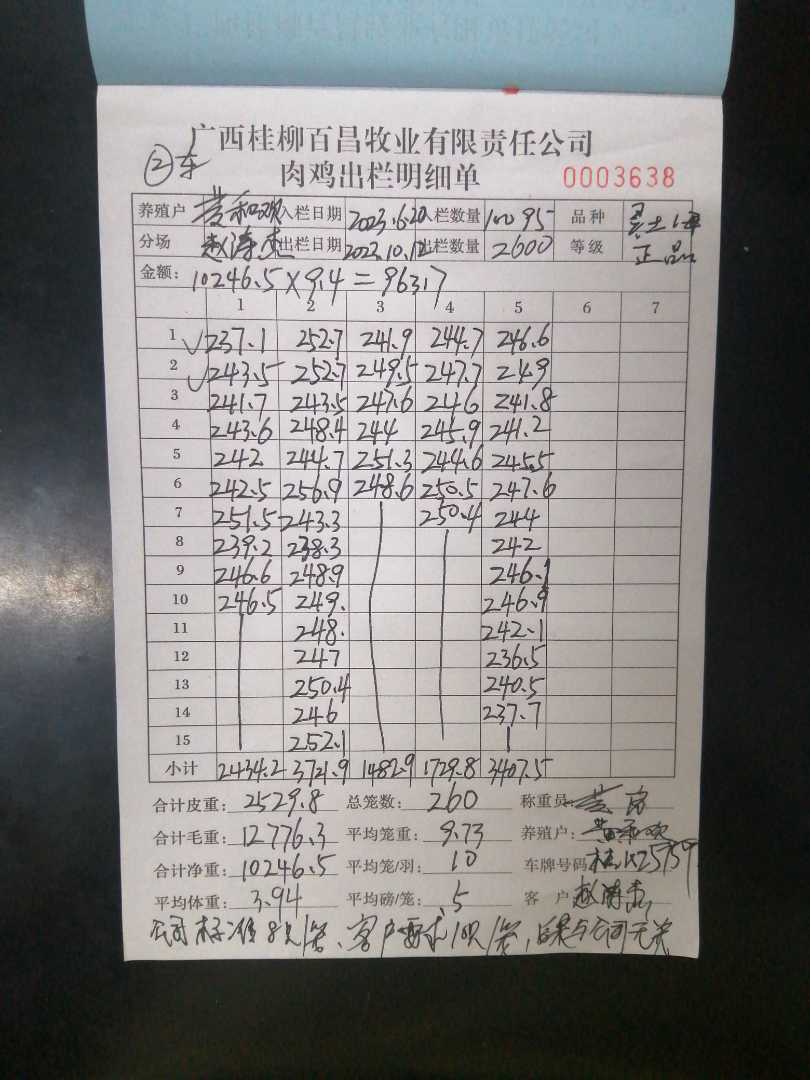 广西桂柳百昌牧业有限责任公司
②车 肉鸡出栏明细单 0003638
养殖户 黄和欢 入栏日期 2023.6.20 入栏数量 10095 品种
分场 赵涛杰 出栏日期 2023.10.12 出栏数量 2600 等级 正品
金额: 10246.5×9.4=96317
1 2 3 4 5 6 7
1 ✓ 237.1 252.7 241.9 244.7 246.6
2 ✓ 243.5 252.7 249.5 247.7 249
3 241.7 243.5 247.6 246 241.8
4 243.6 248.4 244 245.9 241.2
5 242 244.7 251.3 244.6 245.5
6 242.5 256.9 248.6 250.5 247.6
7 251.5 243.3 250.4 244
8 239.2 238.3 242
9 246.6 248.9 246.1
10 246.5 249. 246.9
11 248. 242.1
12 247 236.5
13 250.4 240.5
14 246 237.7
15 252.1
小计 2434.2 3721.9 1482.9 1729.8 3407.5
合计皮重: 2529.8 总笼数: 260 称重员
合计毛重: 12776.3 平均笼重: 9.73 养殖户: 黄和欢
合计净重: 10246.5 平均笼/羽: 10 车牌号码
平均体重: 3.94 平均磅/笼: .5 客户 赵涛杰
公司标准8只/笼、客户要求10只/笼,后果与公司无关